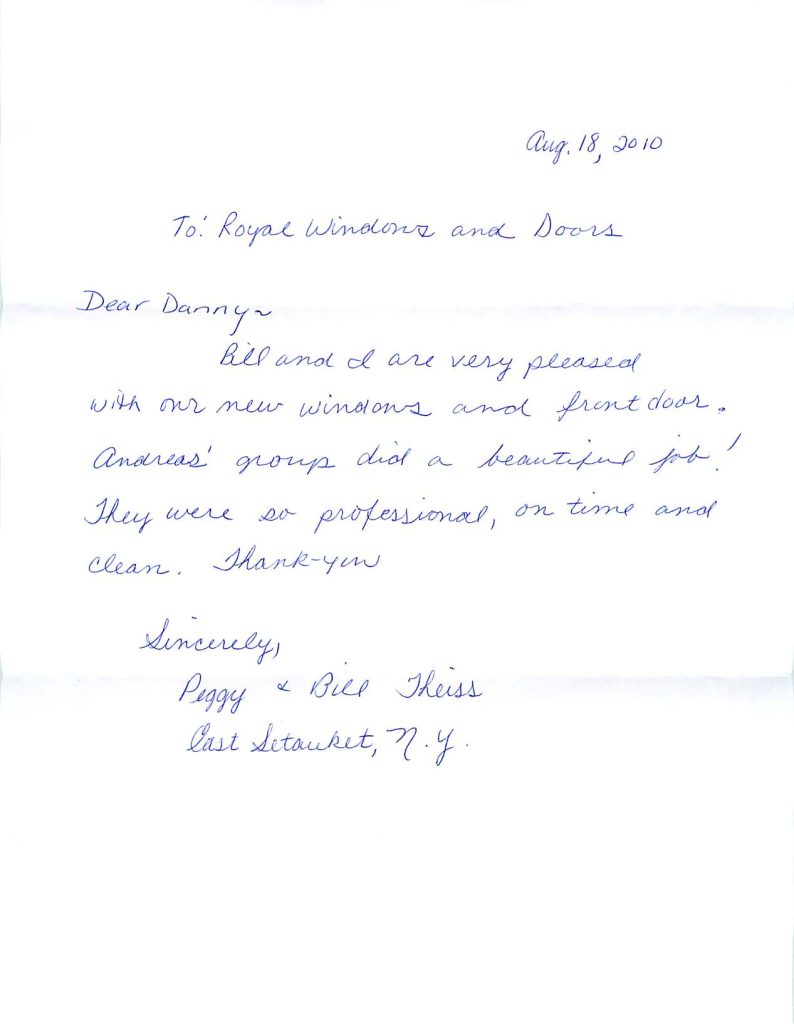 Aug. 18, 2010
To: Royal Windows and Doors
Dear Danny~
Bill and I are very pleased
with our new windows and front door.
Andreas' group did a beautiful job!
They were so professional, on time and
clean. Thank-you
Sincerely,
Peggy & Bill Theiss
East Setauket, N.Y.